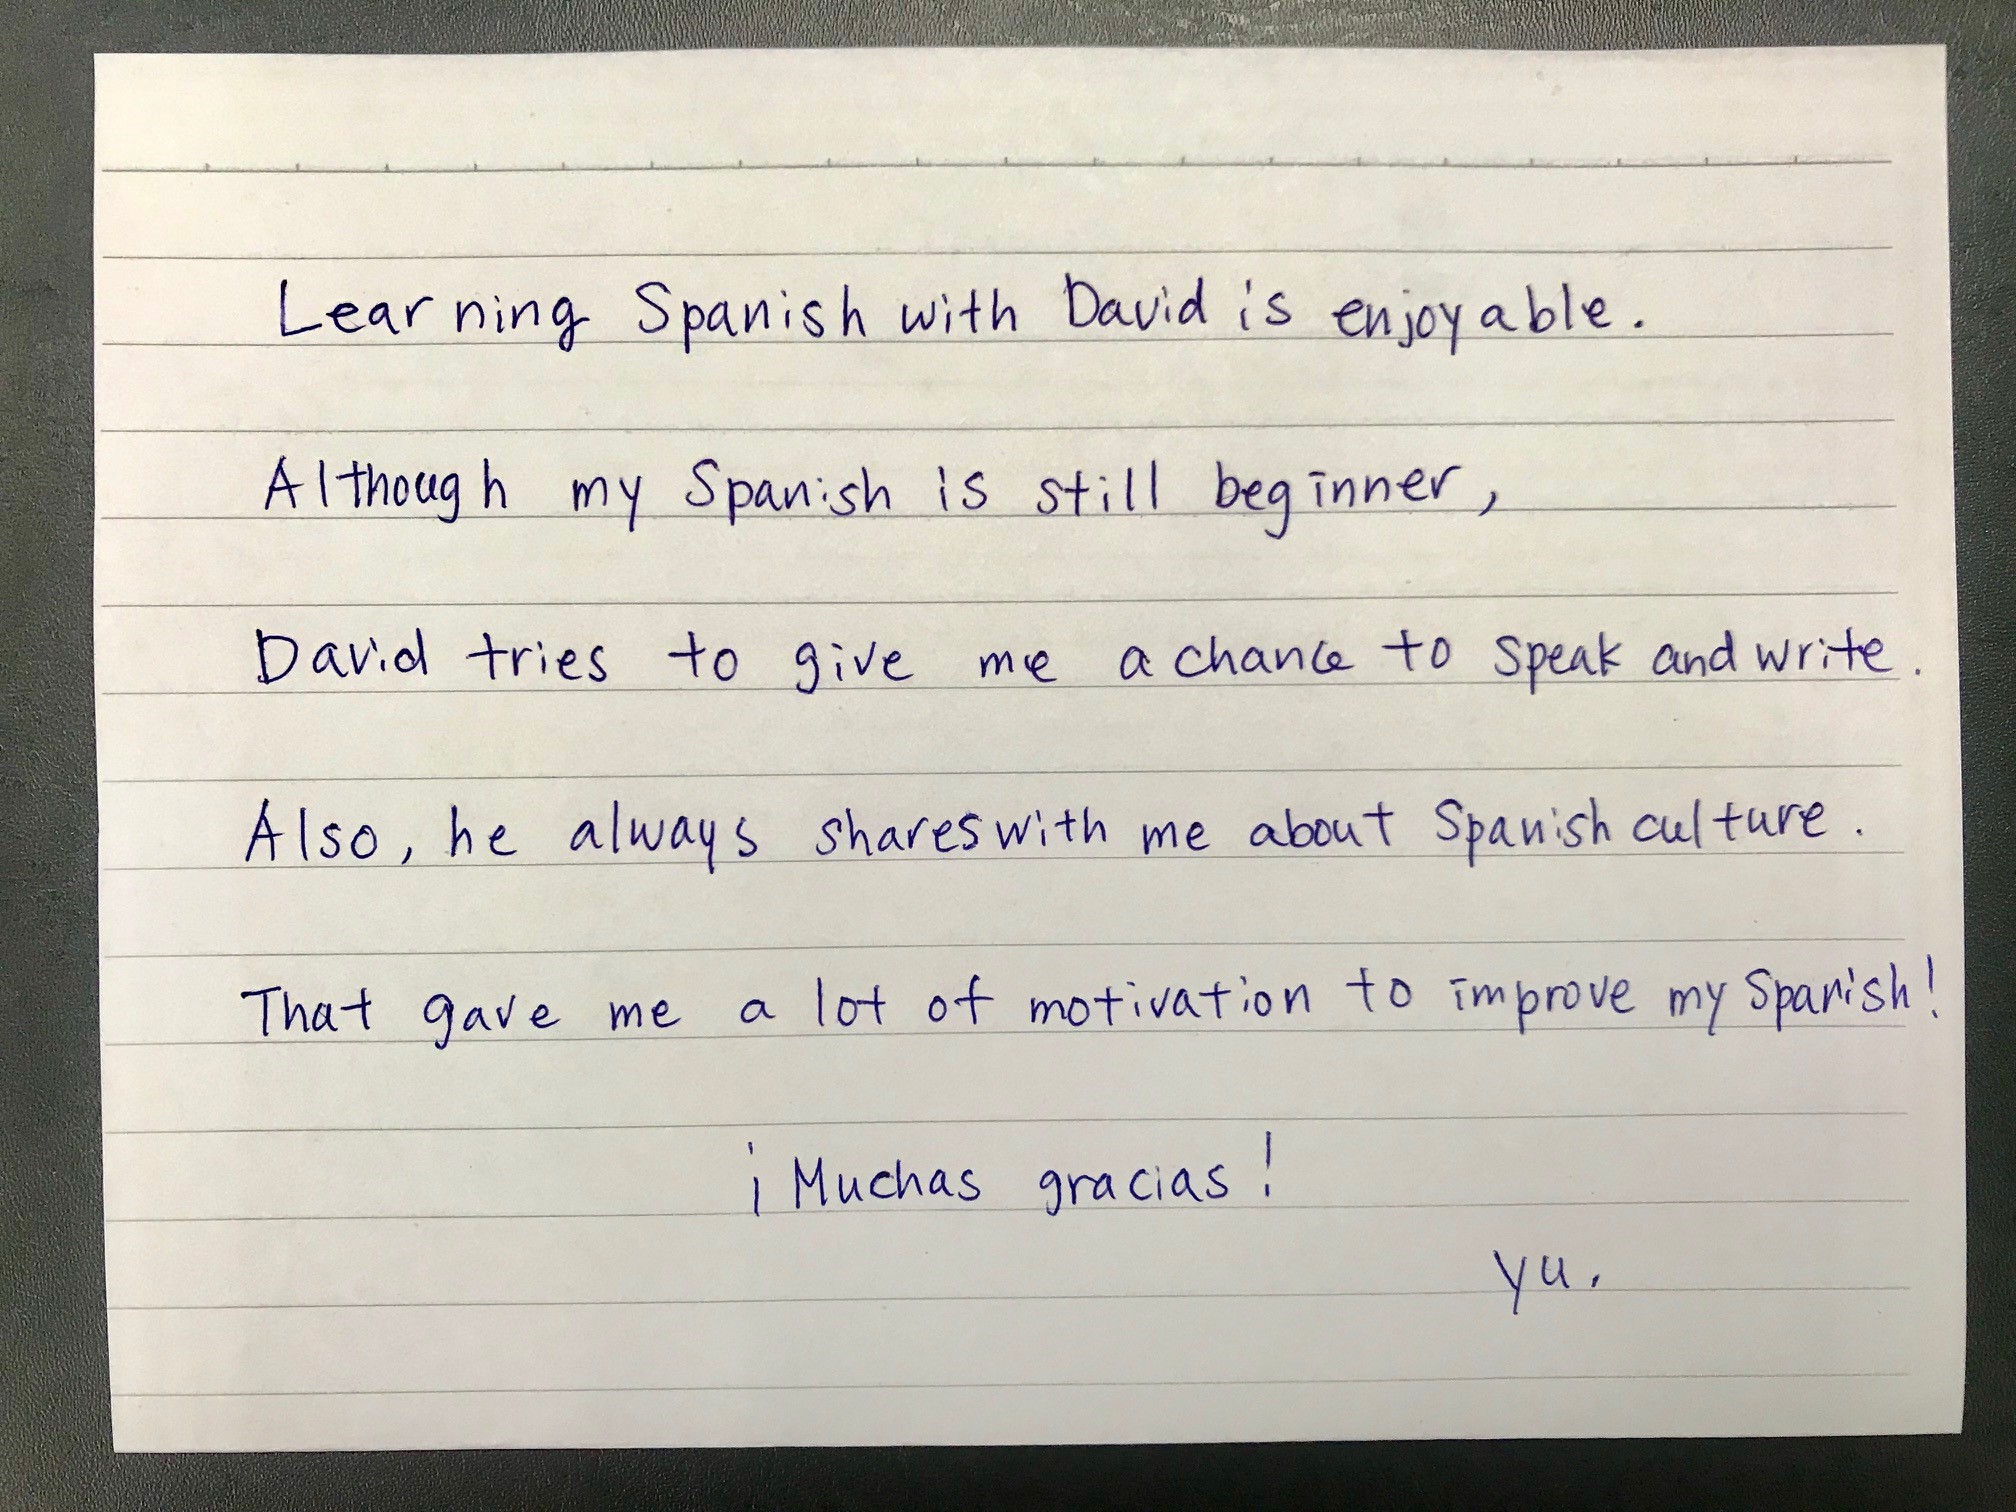 Learning Spanish with David is enjoyable.
Although my Spanish is still beginner,
David tries to give me a chance to speak and write.
Also, he always shares with me about Spanish culture.
That gave me a lot of motivation to improve my Spanish!
¡Muchas gracias!
Yu.